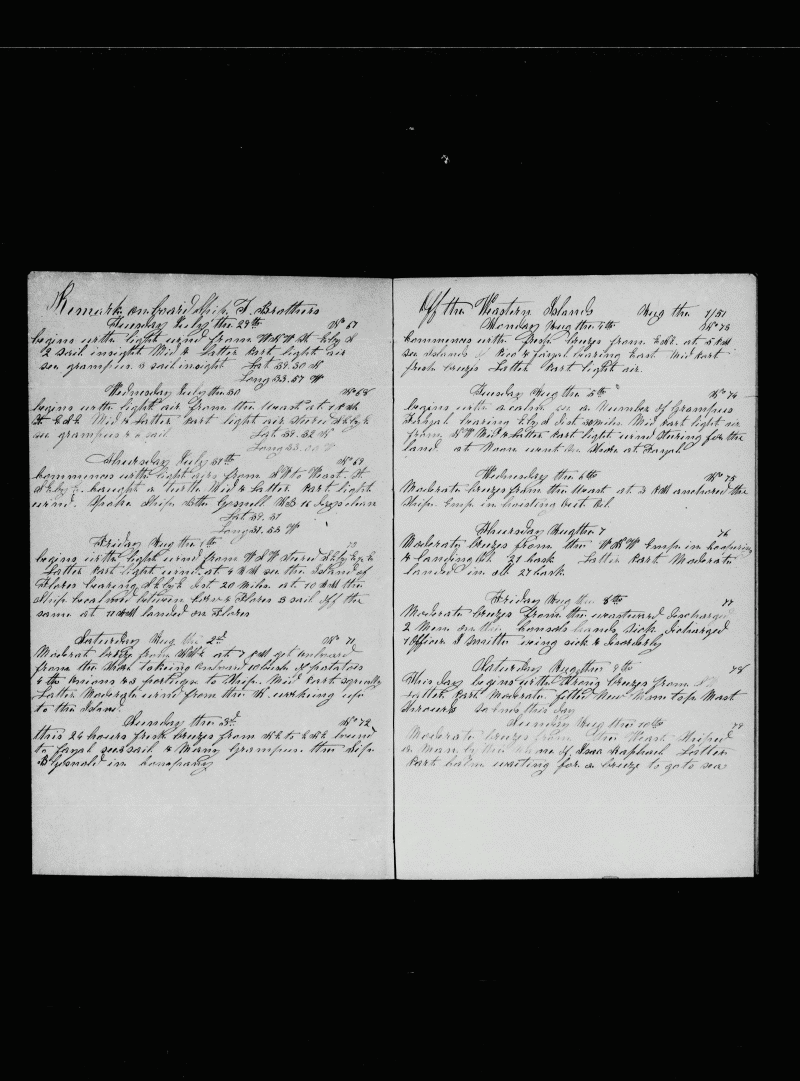 Remarks on board Ship T. Brothers
Tuesday July the 29th No 67
begins with light wind from W N W St E by S
2 sail in sight Mid & Latter Part light air
see grampus 3 sail in sight Lat 39.30 N
Long 33.57 W
Wednesday July the 30 No 68
begins with light air from the West at 1 PM
St E S E Mid & Latter Part light air Steered S E by E
see grampus & sail Lat 39.32 N
Long 33.00 W
Thursday July 31th No 69
Commences with light airs from S W to West. St
S E by E. Caught a turtle Mid & Latter Part light
wind. Spoke Ship B Gosnold
Lat 39.31
Long 31.53 W
Friday Aug the 1th 70
begins with light wind from W S W Steered
Latter Part light wind at 4 AM see the Island of
Flores bearing S E by E Dist 20 Miles at 10 AM the
Ship becalmed between Corvo & Flores 3 sail off the
same at 11 AM landed on Flores
Saturday Aug the 2d No 71
Moderate breeze from at 7 PM got on board
from the Shore taking on board 10 bush of potatoes
& the Onions & 3 portigee to Ship. Mid Part squally
Latter Moderate wind from the N. working up
to the Island
Sunday the 3d No 72
this 24 hours fresh breezes from bound
to fayal see 3 sail & Many Grampus. the Ship
B Gosnold in Company
Off the Western Islands Aug the 1/51
Monday Aug the 4th No 73
Commences with fresh breezes from at 5 PM
see Islands of Pico & fayal bearing East Mid Part
fresh breeze Latter Part light air.
Tuesday Aug the 5th No 74
begins with a calm see a Number of Grampus
Fayal bearing E by S Dist Miles. Mid Part light air
from N W Mid & Latter Part light wind Steering for the
land at Noon went on Shore at Fayal
Wednesday the 6th No 75
Moderate breezes from the West at 3 PM anchored the
Ship. Emp in hoisting out Oil.
Thursday Aug the 7 76
Moderate breezes from the W N W Emp in Coopering
& landing Oil 21 Cask Latter Part Moderate
landed in all 27 Cask.
Friday Aug the 8th 77
Moderate breezes from the westward Discharged
2 Men on the Consols hands Sick Discharged
1 Officer S Smith being sick & Disorderly
Saturday Aug the 9th 78
This day begins with Strong breezes from
Latter Part Moderate. fitted New Main top Mast
Shrouds so Ends this day
Sunday Aug the 10th 79
Moderate breezes from the West Shiped
a Man by the Name of Isac Raphael Latter
Part Calm waiting for a breeze to go to sea